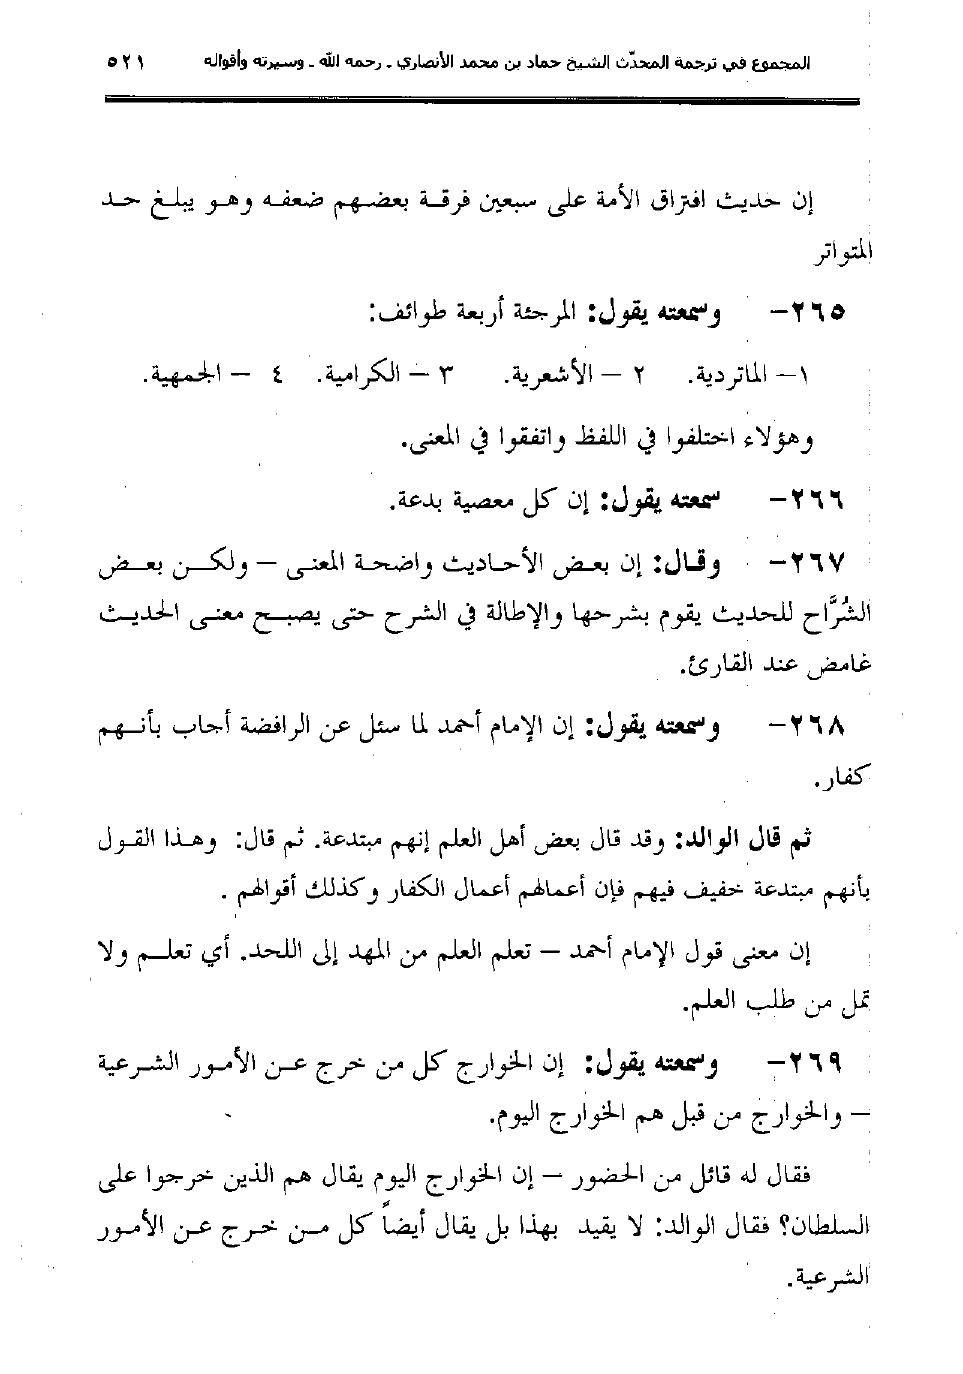 المجموع في ترجمة المحدّث الشيخ حماد بن محمد الأنصاري ـ رحمه الله ـ وسيرته وأقواله ٥٢١
إن حديث افتراق الأمة على سبعين فرقة بعضهم ضعفه وهو يبلغ حد
المتواتر
٢٦٥- وسمعته يقول: المرجئة أربعة طوائف:
١- الماتردية. ٢ - الأشعرية. ٣ - الكرامية. ٤ - الجمهية.
وهؤلاء اختلفوا في اللفظ واتفقوا في المعنى.
٢٦٦- سمعته يقول: إن كل معصية بدعة.
٢٦٧- وقال: إن بعض الأحاديث واضحة المعنى – ولكن بعض
الشُرَّاح للحديث يقوم بشرحها والإطالة في الشرح حتى يصبح معنى الحديث
غامض عند القارئ.
٢٦٨- وسمعته يقول: إن الإمام أحمد لما سئل عن الرافضة أجاب بأنهم
كفار.
ثم قال الوالد: وقد قال بعض أهل العلم إنهم مبتدعة. ثم قال: وهذا القول
بأنهم مبتدعة خفيف فيهم فإن أعمالهم أعمال الكفار وكذلك أقوالهم .
إن معنى قول الإمام أحمد – تعلم العلم من المهد إلى اللحد. أي تعلم ولا
تمل من طلب العلم.
٢٦٩- وسمعته يقول: إن الخوارج كل من خرج عن الأمور الشرعية
– والخوارج من قبل هم الخوارج اليوم.
فقال له قائل من الحضور – إن الخوارج اليوم يقال هم الذين خرجوا على
السلطان؟ فقال الوالد: لا يقيد بهذا بل يقال أيضاً كل من خرج عن الأمور
الشرعية.